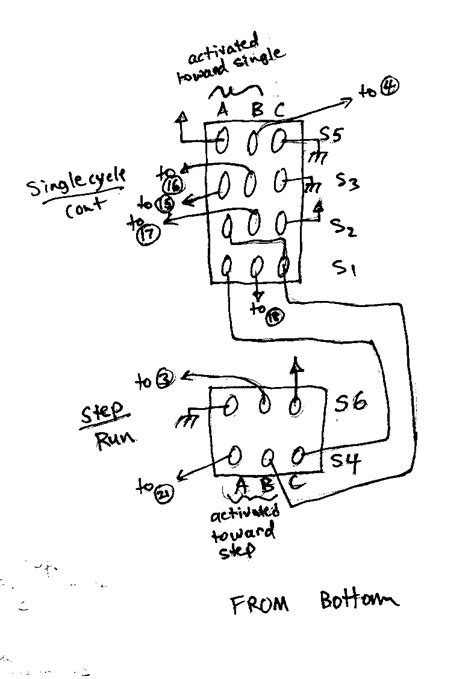 activated
toward single
A B C
to 4
S5
to 16
S3
Single cycle
Cont
to 15
to 17
S2
S1
to 18
to 3
S6
Step
Run
S4
to 21
A B C
activated
toward
step
FROM Bottom